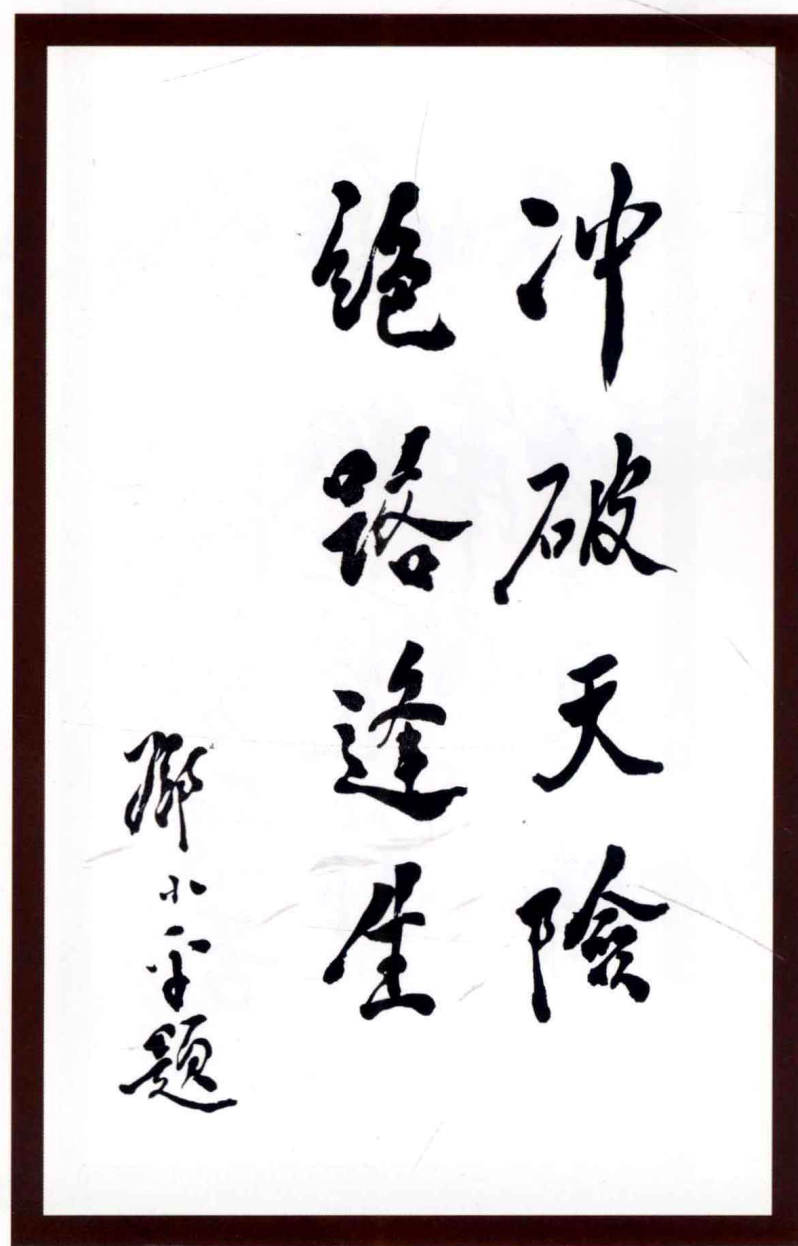 冲破天險
绝路逢生
鄧小平题